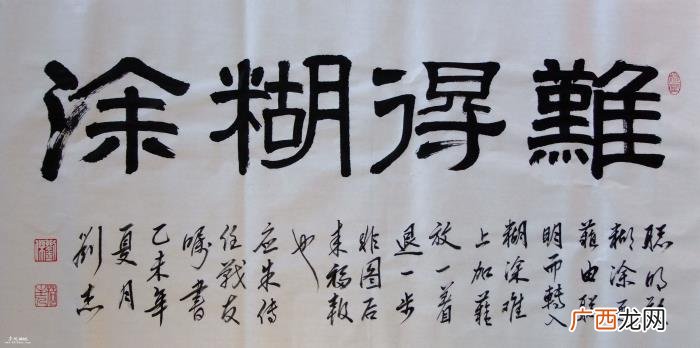 難得糊涂
聰明難
糊涂
難由聰
明而轉入
糊涂難
上加難
放一着
退一步
非圖后
来福報
也
应朱传
任戰友
嘱書
乙未年
夏月
劉杰
广西龙网